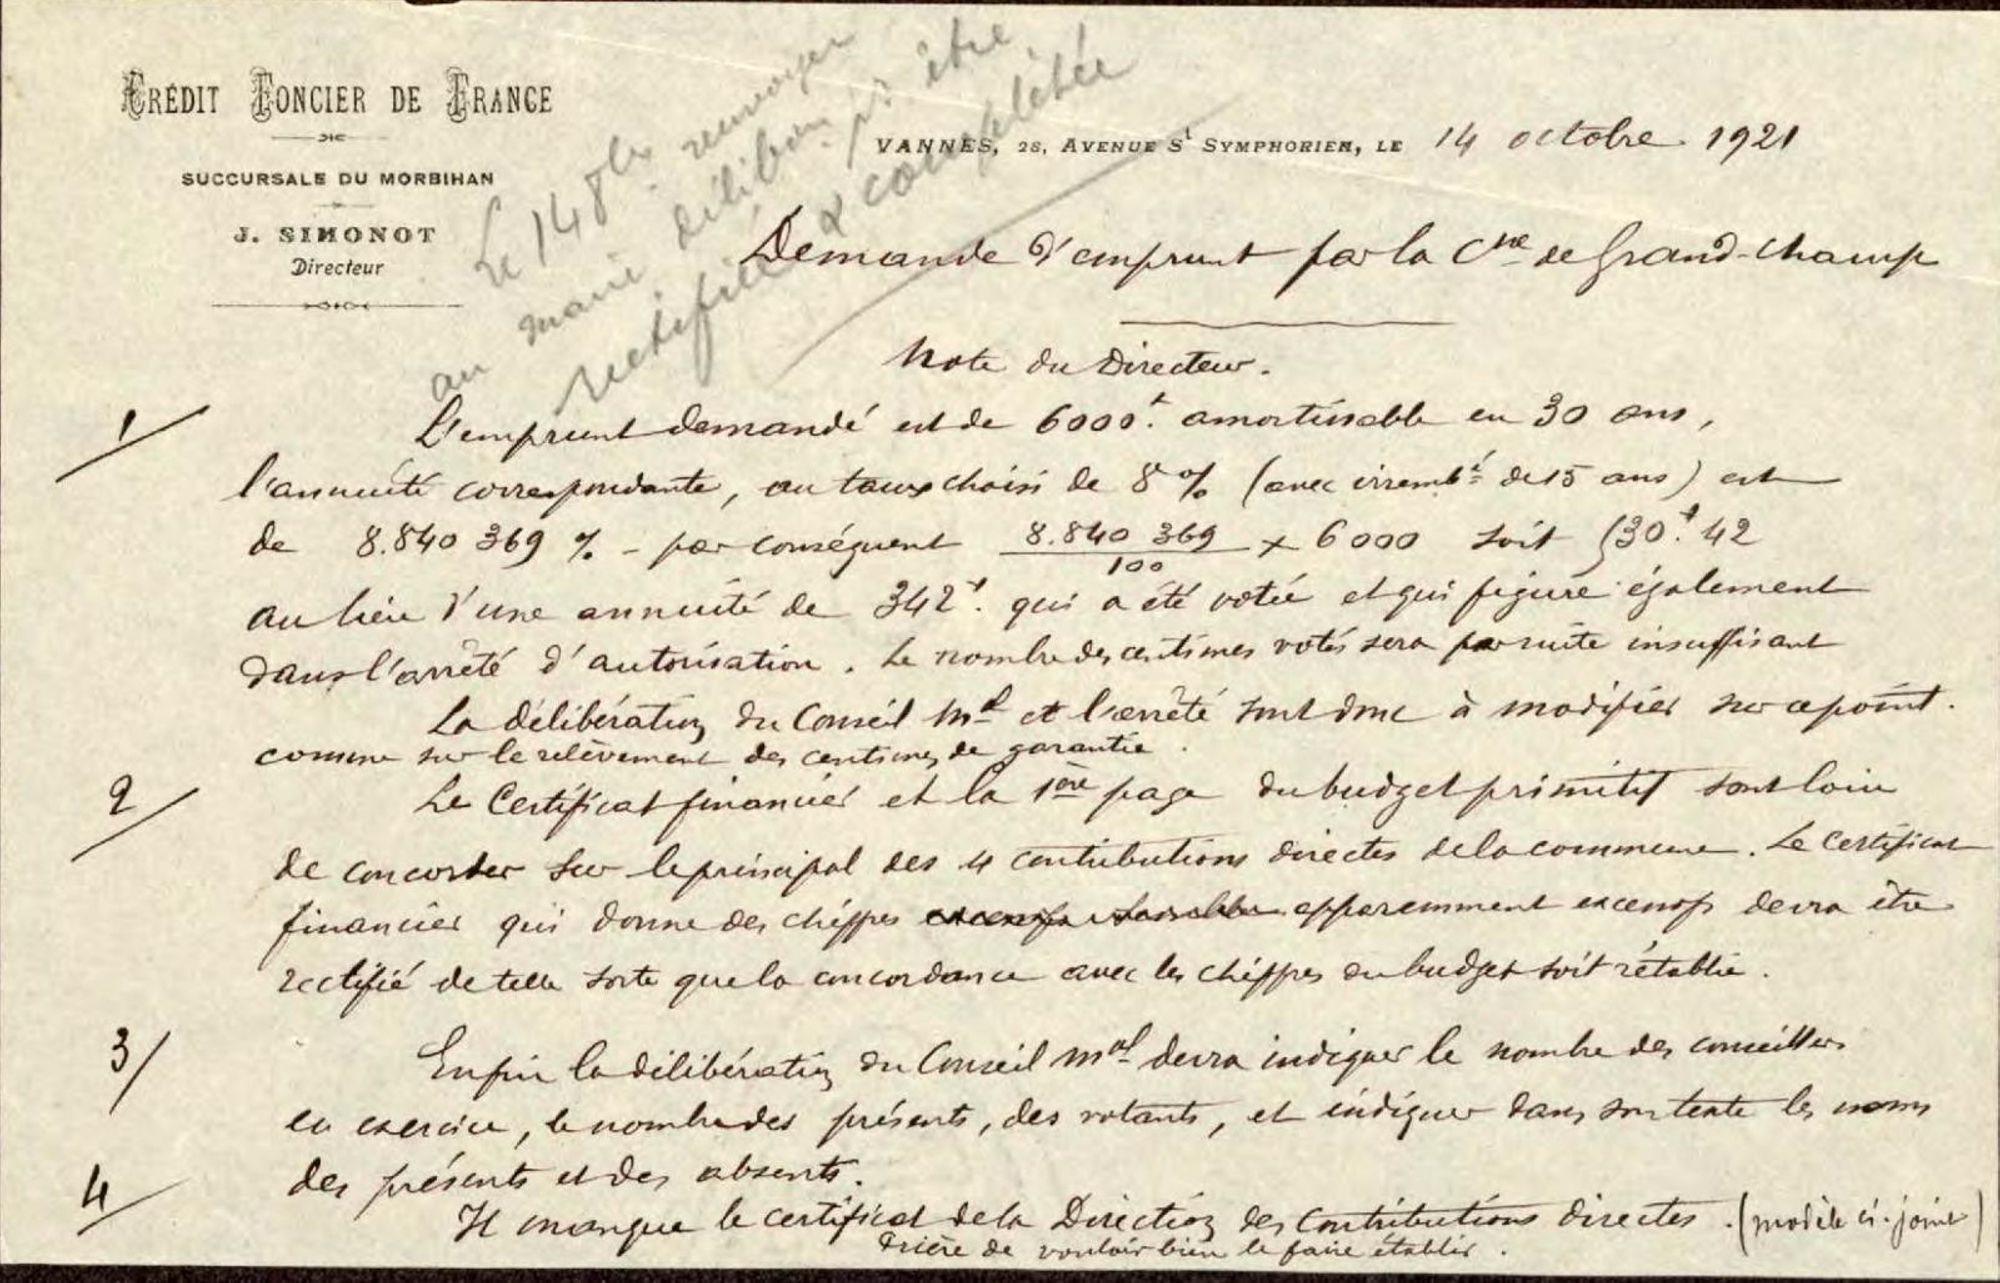 CRÉDIT FONCIER DE FRANCE
SUCCURSALE DU MORBIHAN
J. SIMONOT
Directeur
Le 14 8bre renvoyer
au maire délibon pr être
rectifiée & complétée
VANNES, 28, AVENUE St SYMPHORIEN, LE 14 octobre 1921
Demande d'emprunt par la Cne de Grand-Champ
Note du Directeur.
1/ L'emprunt demandé est de 6000f. amortissable en 30 ans,
l'annuité correspondante, au taux choisi de 8% (avec irrembt de 15 ans) est
de 8.840 369 % - par conséquent 8.840 369 / 100 x 6000 soit 530f. 42
au lieu d'une annuité de 342f. qui a été votée et qui figure également
dans l'arrêté d'autorisation. Le nombre des centimes votés sera par suite insuffisant
La délibération du Conseil mal et l'arrêté sont donc à modifier sur ce point.
comme sur le relèvement des centimes de garantie.
2/ Le Certificat financier et la 1ère page du budget primitif sont loin
de concorder sur le principal des 4 contributions directes de la commune. Le certificat
financier qui donne des chiffres apparemment excessifs devra être
rectifié de telle sorte que la concordance avec les chiffres du budget soit rétablie.
3/ Enfin la délibération du Conseil mal devra indiquer le nombre des conseillers
en exercice, le nombre des présents, des votants, et indiquer dans son texte les noms
des présents et des absents.
4/ Il manque le certificat de la Direction des Contributions directes. (modèle ci-joint)
Prière de vouloir bien le faire établir.